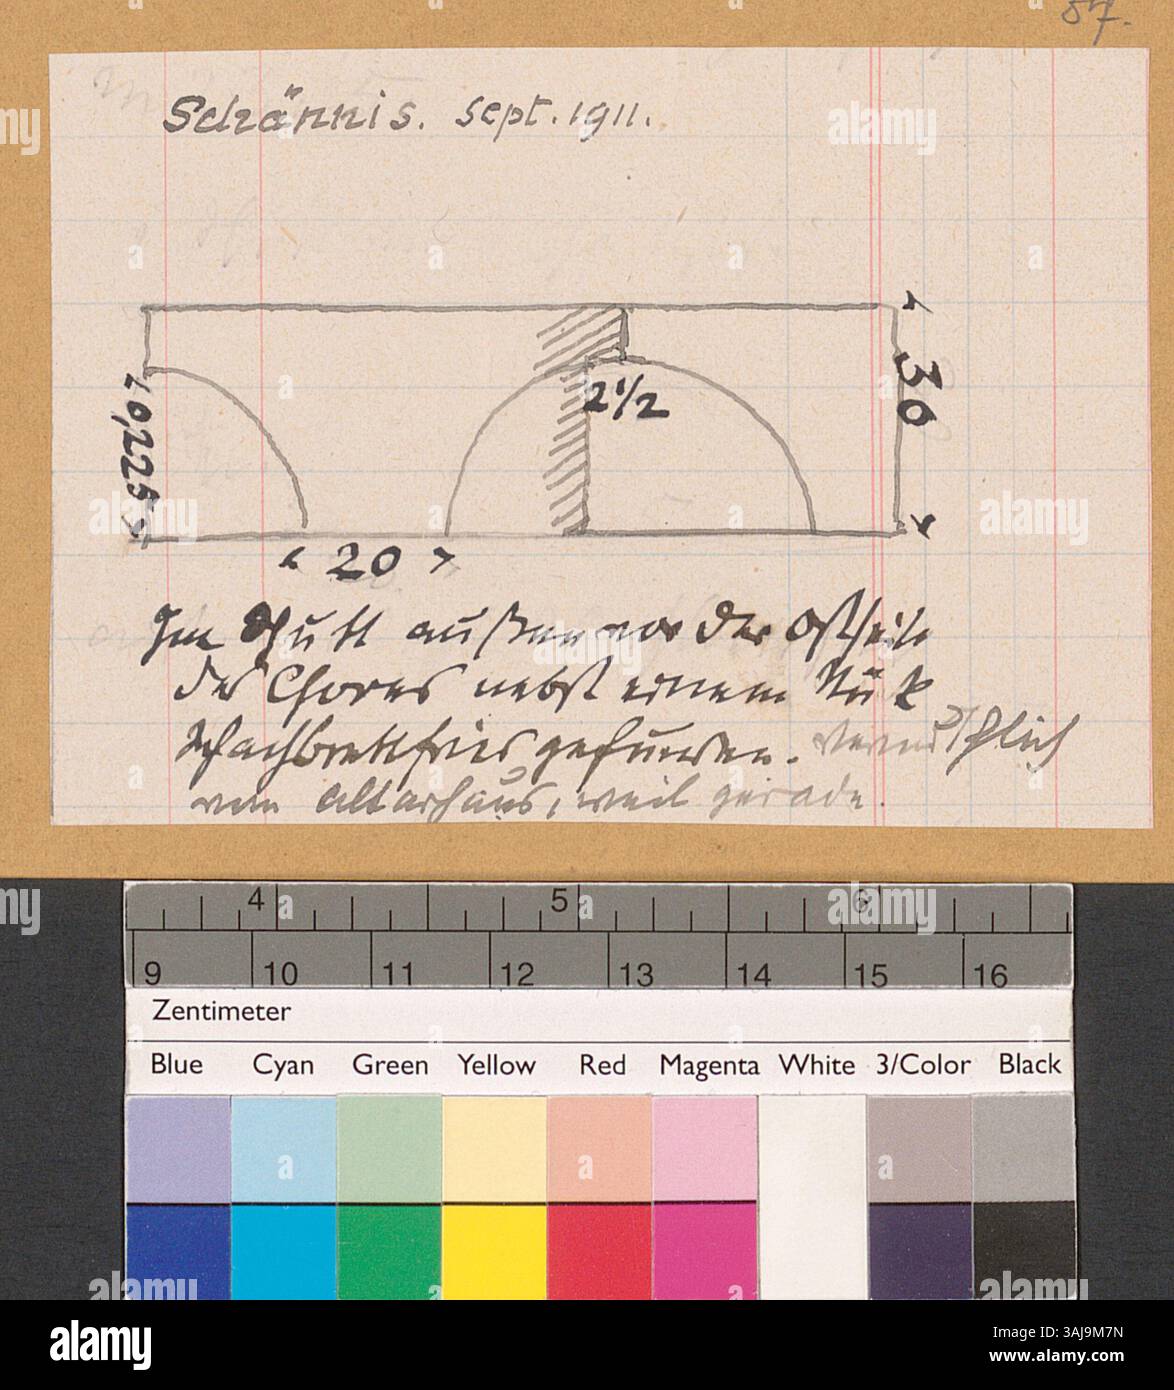 87.
Schännis. sept. 1911.
2 1/2
30
0,225
20
Im Schutt außen vor der Ostseite
des Chores nebst einem Stück
Schachbrettfries gefunden. Vermutlich
vom Altarhaus, weil gerade.
4 5 6
9 10 11 12 13 14 15 16
Zentimeter
Blue Cyan Green Yellow Red Magenta White 3/Color Black
alamy
Image ID: 3AJ9M7N
www.alamy.com